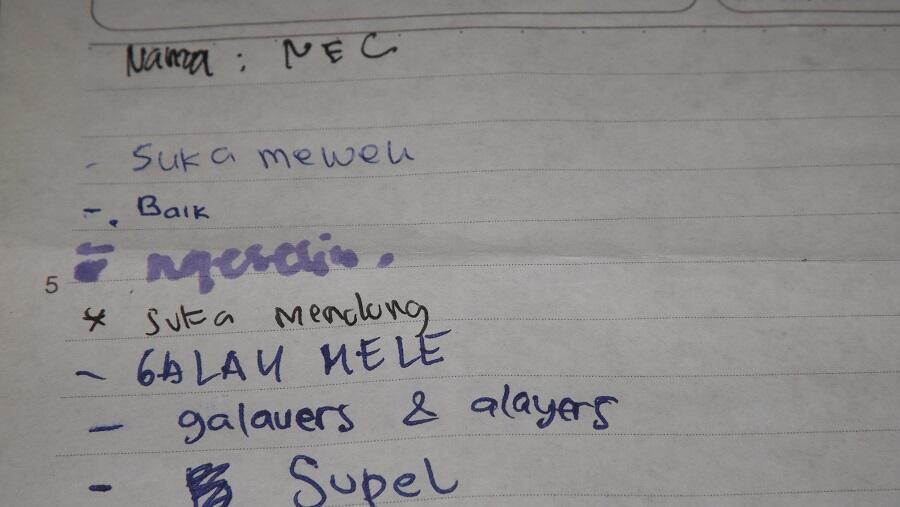 Nama : NEC
- Suka meweh
-. Baik
- ngeselin.
5
* suka mendung
- GALAU MELE
- galauers & alayers
- Supel